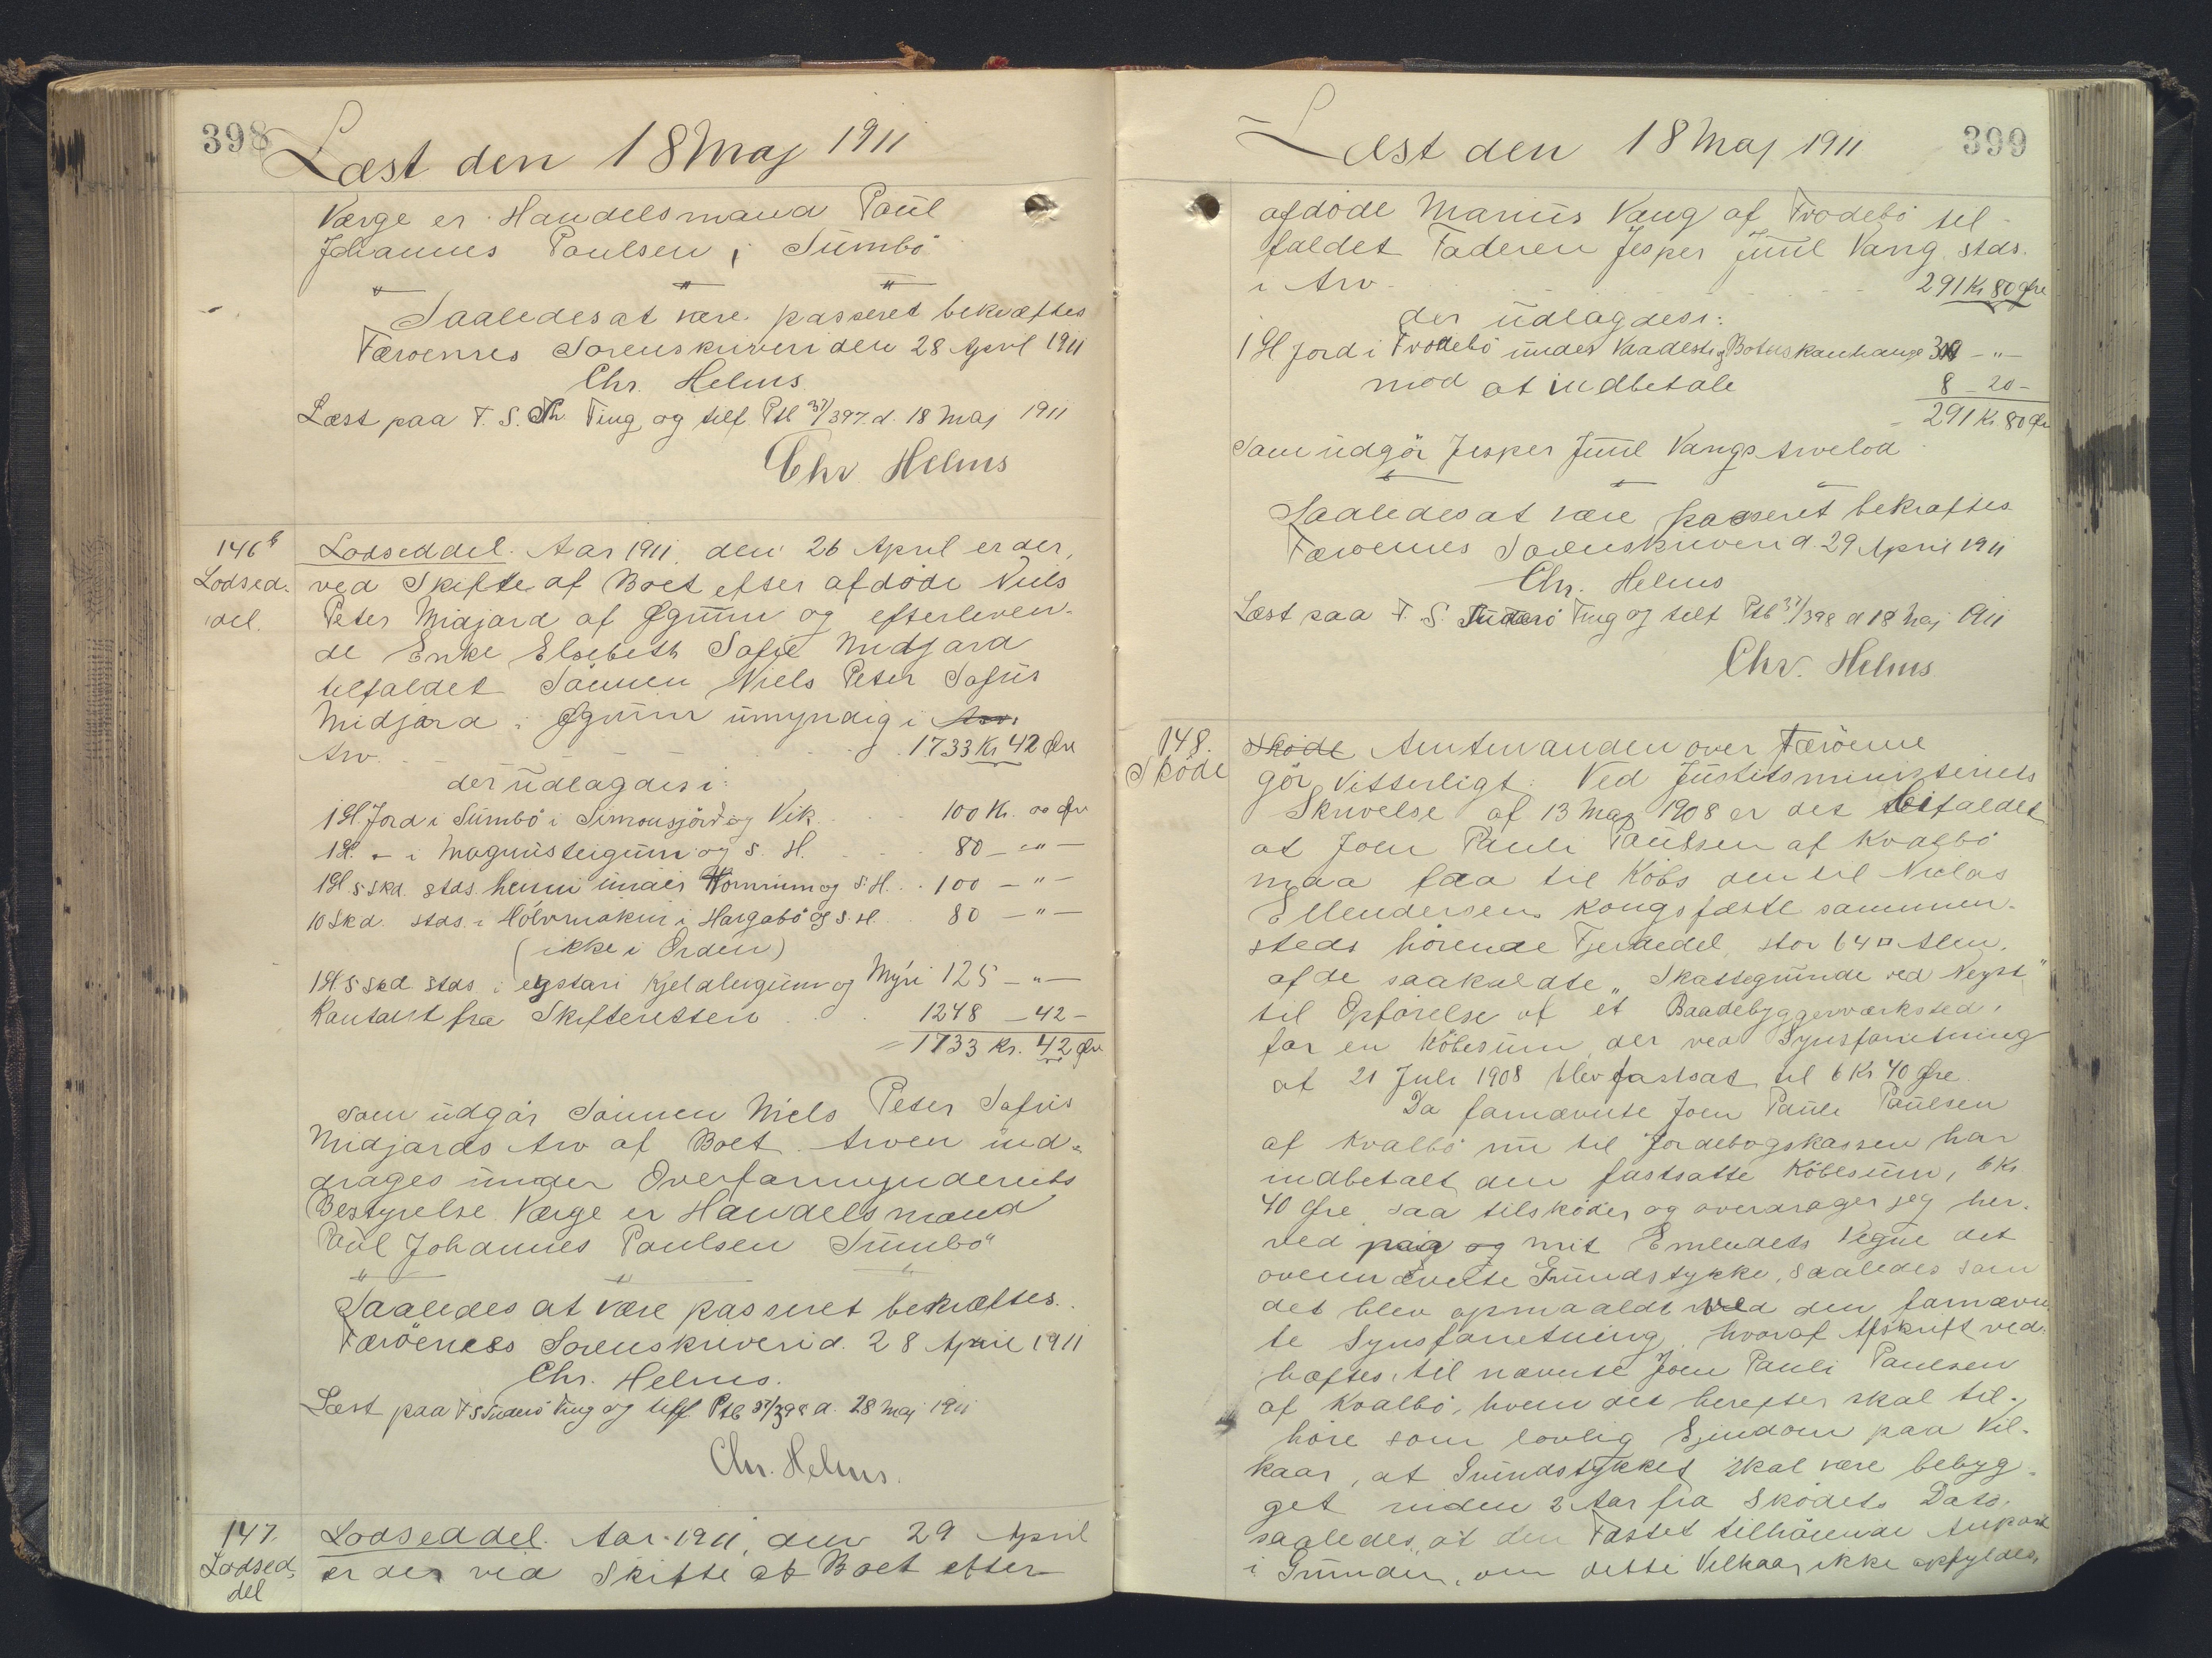 398
Læst den 18 Maj 1911
Værge er Handelsmand Poul
Johannes Poulsen i Sumbö
Saaledes at være passeret bekræftes
Færøernes Sorenskriveri den 28 April 1911
Chr. Helms
Læst paa F. S. Ting og tilf. Ptb 37/397. d. 18 Maj 1911
Chr Helms
146 b
Lodsed-
del.
Lodseddel. Aar 1911, den 26 April er der,
ved Skifte af Boet efter afdöde Niels
Peter Midjord af Øgrum og efterleven-
de Enke Elsebeth Sofie Midjord
tilfaldet Sönnen Niels Peter Sofus
Midjord i Øgrum umyndig i Arv.
Arv. 1733 Kr 42 Øre
der udlagdes i:
1 Gl. Jord i Sumbö i Simonsjörd og Vik 100 Kr. 00 Øre
1 Gl. - i Magnusteigum og s. H. 80 - " -
1 Gl 5 Skd. stds. heimi undir Homrum og s. H. 100 - " -
10 Skd. stds. i Hólvmakur i Hargabö og s. H. 80 - " -
(ikke i Orden)
1 Gl 5 Skd stds i eystari Kjeldleigum og Mýri 125 - " -
Kontant fra Skifteretten 1248 - 42 -
= 1733 Kr. 42 Øre
som udgör Sönnen Niels Peter Sofus
Midjords Arv af Boet. Arven ind-
drages under Overformynderiets
Bestyrelse. Værge er Handelsmand
Poul Johannes Poulsen Sumbö"
Saaledes at være passeret bekræftes.
Færöernes Sorenskriveri d. 28 April 1911
Chr. Helms.
Læst paa F S Suderö Ting og tilf. Ptb 37/398 d. 28 Maj 1911
Chr. Helms.
147.
Lodsed-
del
Lodseddel. Aar 1911, den 29 April
er der ved Skifte af Boet efter
399
Læst den 18 Maj 1911
afdöde Marius Vang af Frodebö til-
faldet Faderen Jesper Juul Vang stds.
i Arv 291 Kr 80 Øre
der udlagdes i:
1 Gl Jord i Frodebö under 300 - " -
mod at indbetale 8 - 20 -
291 Kr 80 Øre
som udgör Jesper Juul Vangs Arvelod
Saaledes at være passeret bekræftes
Færøernes Sorenskriveri d. 29 April 1911
Chr. Helms
Læst paa F. S. Suderö Ting og tilf Ptb 37/398 d 18 Maj 1911
Chr. Helms
148.
Sköde
Sköde Amtmanden over Færöerne
gör Vitterligt: Ved Justitsministeriets
Skrivelse af 13 Maj 1908 er det bifaldet
at Joen Pauli Paulsen af Kvalbö
maa faa til Köbs den til Niclas
Ellendersens Kongsfæste sammen-
steds hörende Fjerdedel, stor 64 □ Alen,
af de saakaldte "Skattegrunde ved Neyst"
til Opförelse af et Baadebyggerværksted,
for en Köbesum, der ved Synsforretning
af 21 Juli 1908 blev fastsat til 6 Kr 40 Øre.
Da fornævnte Joen Pauli Paulsen
af Kvalbö nu til Jordebogskassen har
indbetalt den fastsatte Köbesum, 6 Kr
40 Øre, saa tilsköder og overdrager jeg her-
ved paa og mit Embedets Vegne det
ovennævnte Grundstykke, saaledes som
det blev opmaaldt ved den fornævn-
te Synsforretning, hvoraf Afskrift ved-
hæftes, til nævnte Joen Pauli Paulsen
af Kvalbö, hvem det herefter skal til-
höre som lovlig Ejendom paa Vil-
kaar, at Grundstykket skal være bebyg-
get inden 2 Aar fra Sködets Dato,
saaledes, at den Fæstet tilhörende Anpart
i Grunden, om dette Vilkaar ikke opfyldes,